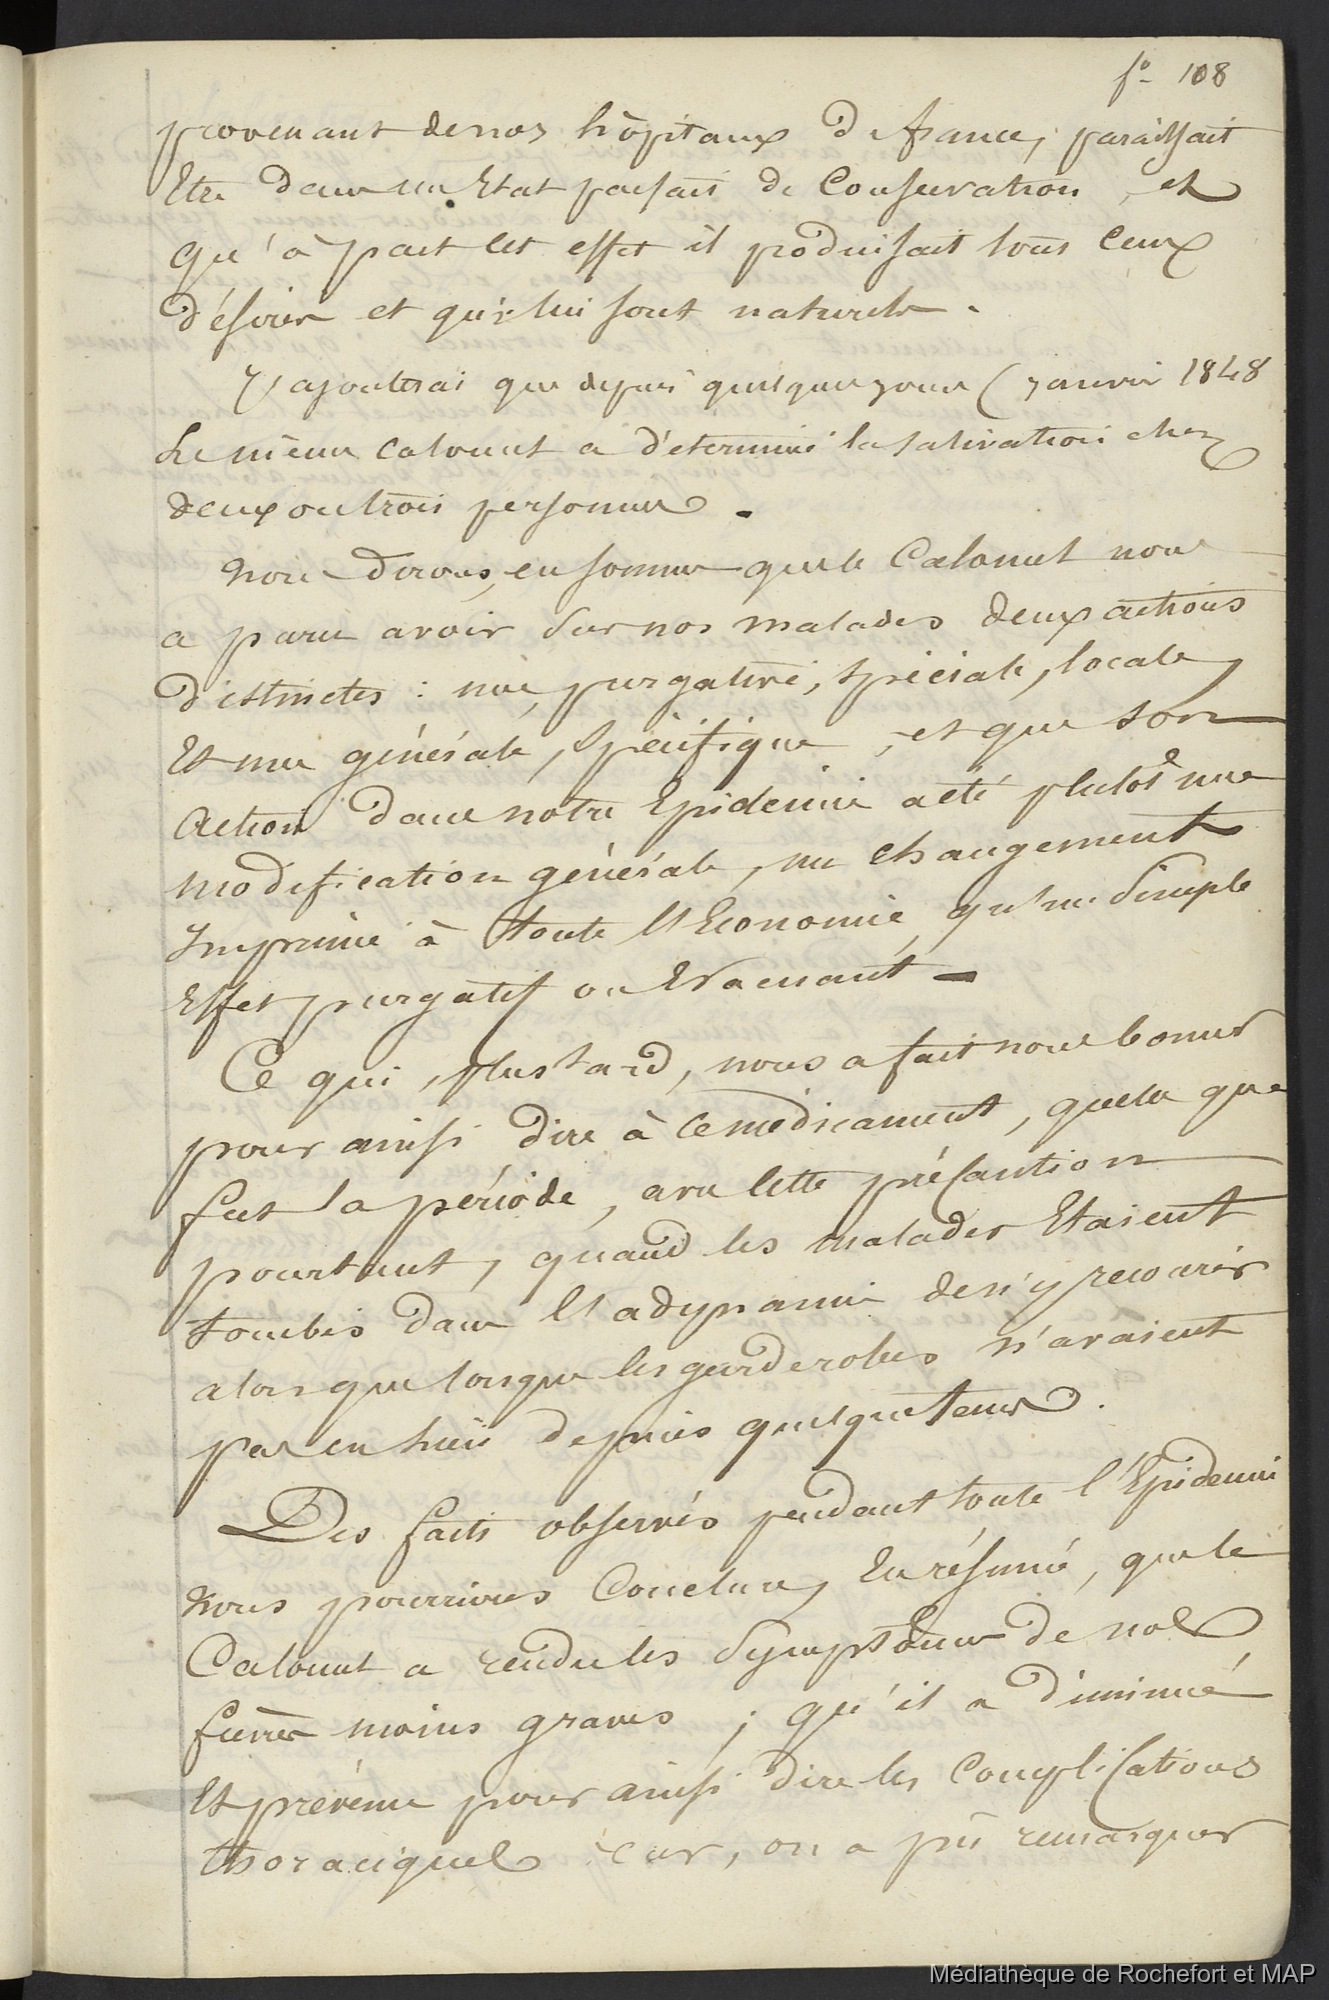 fo 108
provenant de nos hôpitaux de france, paraissait
Etre dans un Etat parfait de Conservation, et
qu'à part cet effet il produisait tous ceux
désirés et qui lui sont naturels.
J'ajouterai que depuis quelques jours (janvier 1848
Le même calomel a déterminé la salivation chez
deux ou trois personnes.
Nous dirons, en somme que le Calomel nous
a paru avoir sur nos malades deux actions
distinctes : une, purgative, spéciale, locale,
Et une générale, spécifique, et que son
Action dans notre Epidemie a été plutôt une
modification générale, un changement
Imprimé à toute l'Economie, qu'un simple
Effet purgatif ou Evacuant -
Ce qui, plus tard, nous a fait nous borner
pour ainsi dire à ce médicament, quelle que
fut la période, avec cette précaution
pourtant, quand les malades Etaient
tombés dans l'adynamie de n'y recourir
alors que lorsque les garderobes n'avaient
pas eu lieu depuis quelque tems.
Des faits observés pendant toute l'Epidemie
nous pourrions Conclure, En résumé, que le
Calomel a rendu les symptômes de nos
fièvres moins graves ; qu'il a diminué
Et prévenu pour ainsi dire les Complications
thoraciques car, on a pû remarquer
Médiathèque de Rochefort et MAP